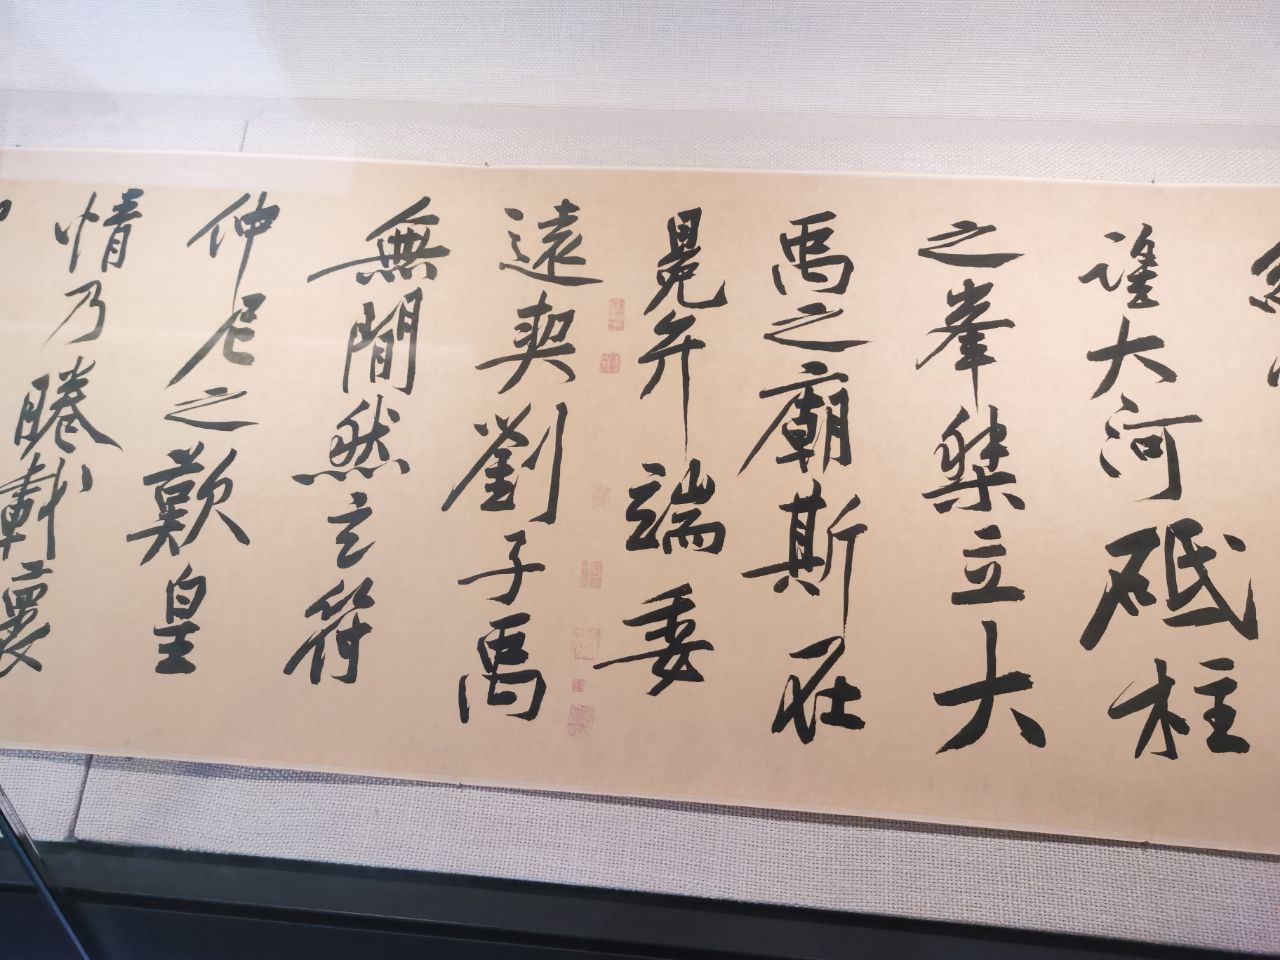 望大河砥柱
之峯桀立大
禹之廟斯在
冕弁端委
遠契劉子禹
無閒然玄符
仲尼之歎皇
情乃睠載懷